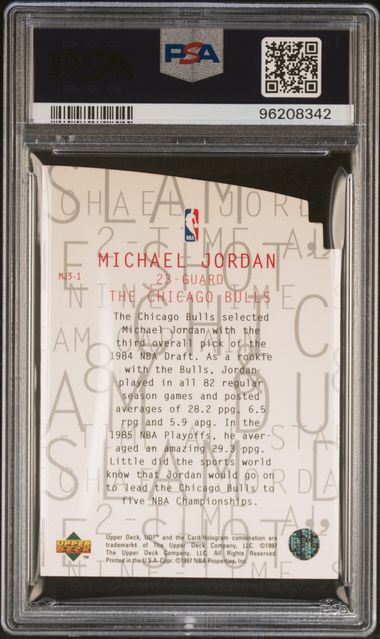 PSA
96208342
SLAM
CHAEL JORD
2-TIME AL
NBA
MICHAEL JORDAN
MJ3-1
23-GUARD
THE CHICAGO BULLS
The Chicago Bulls selected
Michael Jordan with the
third overall pick of the
1984 NBA Draft. As a rookie
with the Bulls, Jordan
played in all 82 regular
season games and posted
averages of 28.2 ppg, 6.5
rpg and 5.9 apg. In the
1985 NBA Playoffs, he aver-
aged an amazing 29.3 ppg.
Little did the sports world
know that Jordan would go on
to lead the Chicago Bulls to
five NBA Championships.
UPPER DECK
Upper Deck, UD3™ and the Card/Hologram combination are
trademarks of The Upper Deck Company, LLC. ©1997
The Upper Deck Company, LLC. All Rights Reserved.
Printed in the U.S.A. Copr. ©1997 NBA Properties, Inc.
PSA